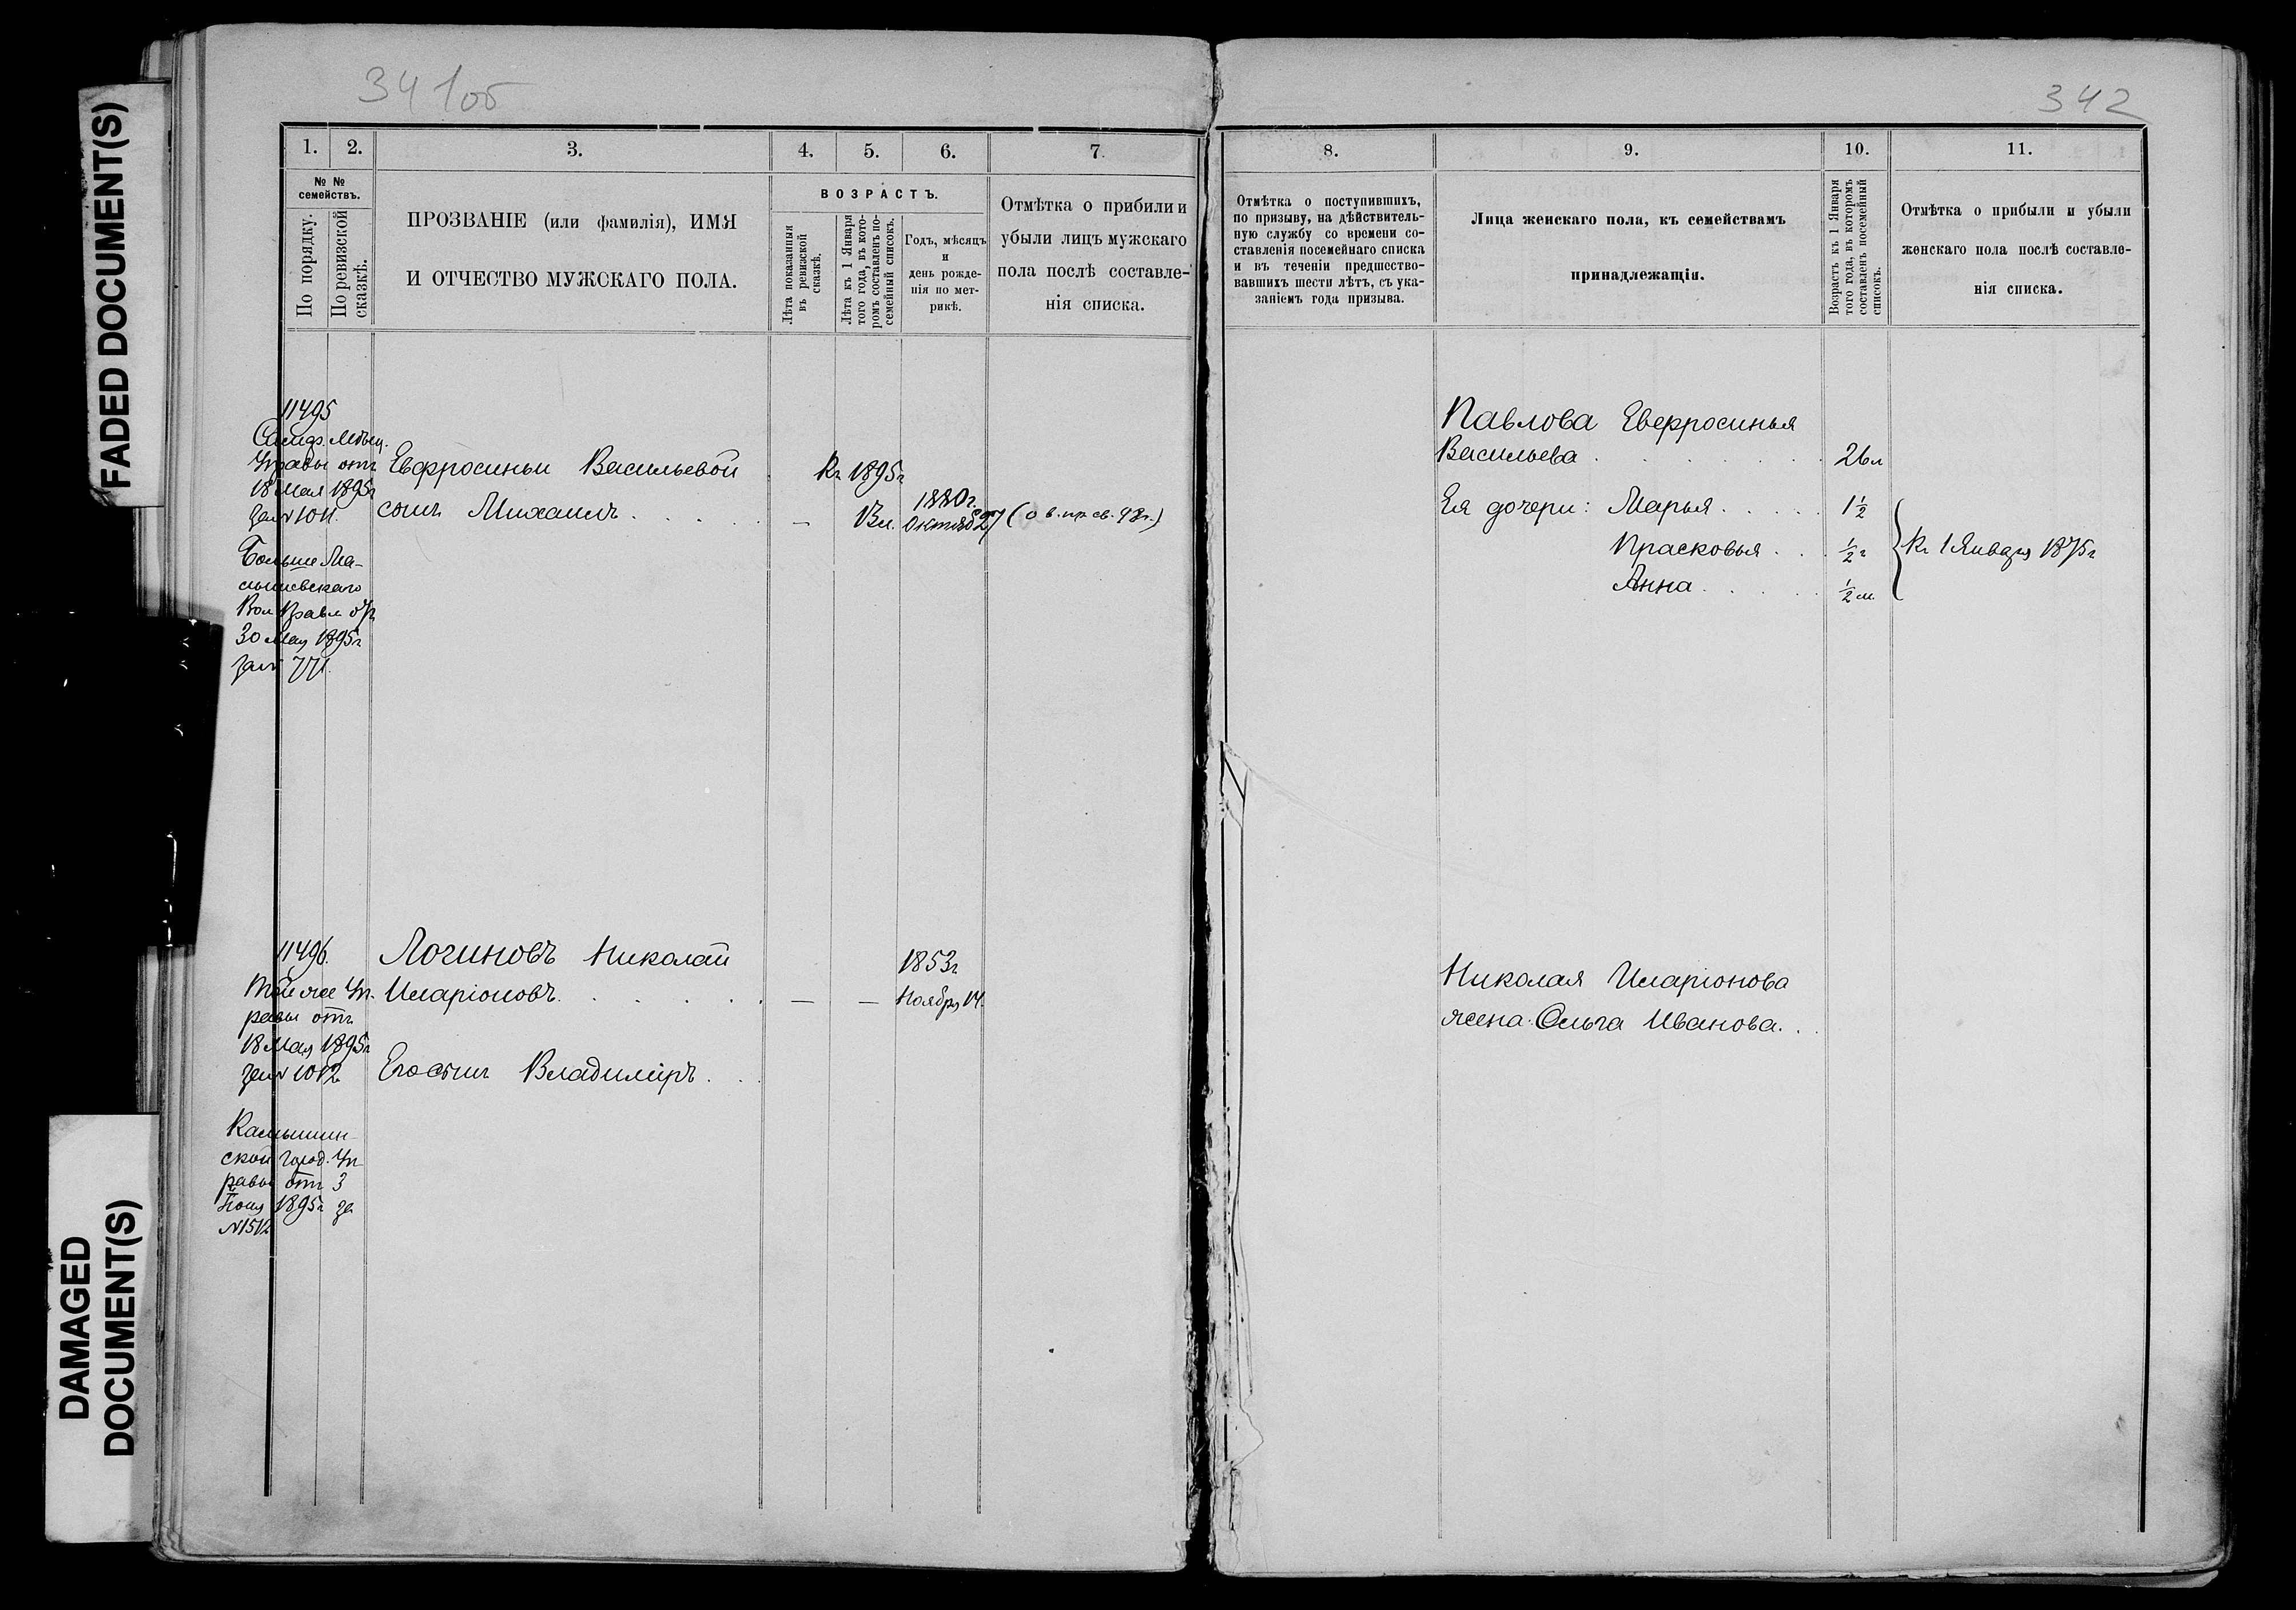 FADED DOCUMENT(S)
DAMAGED
DOCUMENT(S)
341об
1. 2. 3. 4. 5. 6. 7.
№ №
семействъ.
По порядку.
По ревизской
сказкѣ.
ПРОЗВАНІЕ (или фамилія), ИМЯ
И ОТЧЕСТВО МУЖСКАГО ПОЛА.
ВОЗРАСТЪ.
Лѣта показанныя
въ ревизской
сказкѣ.
Лѣта къ 1 Января
того года, въ кото-
ромъ составленъ по-
семейный списокъ.
Годъ, мѣсяцъ
и
день рожде-
нія по мет-
рикѣ.
Отмѣтка о прибили и
убыли лицъ мужскаго
пола послѣ составле-
нія списка.
11495
Мѣщ.
Управы отъ
18 Мая 1895г
за № 1011.
Больше Ма-
лышевскаго
Вол Правл отъ
30 Мая 1895г
за № 771.
Евфросиньи Васильевой
сынъ Михаилъ
Къ 1895г
—
13 л.
1880г.
Октяб 27
(о в. пр св. 98г.)
11496.
Той же Уп-
равы отъ
18 Мая 1895г
за № 1012
Камышин-
ской Город. Уп-
равы отъ 3
Іюня 1895г за
№ 1512
Логиновъ Николай
Иларіоновъ
— —
1853г
Ноября 14.
Его сынъ Владиміръ
342
8. 9. 10. 11.
Отмѣтка о поступившихъ,
по призыву, на дѣйствитель-
ную службу со времени со-
ставленія посемейнаго списка
и въ теченіи предшество-
вавшихъ шести лѣтъ, съ ука-
заніемъ года призыва.
Лица женскаго пола, къ семействамъ
принадлежащія.
Возрастъ къ 1 Января
того года, въ которомъ
составленъ посемейный
списокъ.
Отмѣтка о прибыли и убыли
женскаго пола послѣ составле-
нія списка.
Павлова Евфросинья
Васильева 26 л
Ея дочери: Марья 1½
Прасковья ½ г
Анна ½ м.
Къ 1 Января 1875г
Николая Иларіонова
жена Ольга Иванова